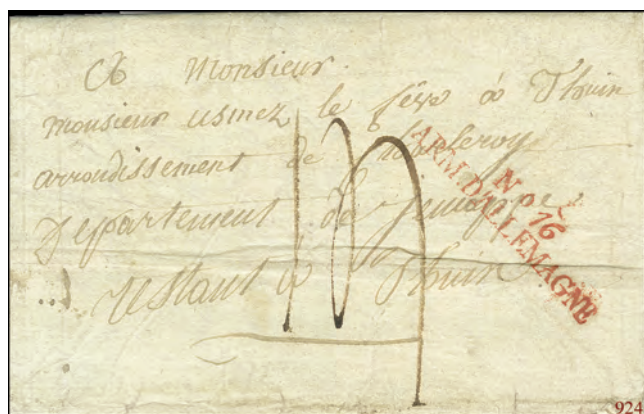 A Monsieur.
monsieur usmez le féve à Thuin
arrondissement de
Departement de Jemappe
restant à Thuin
N 76
ARM. D'ALLEMAGNE
924